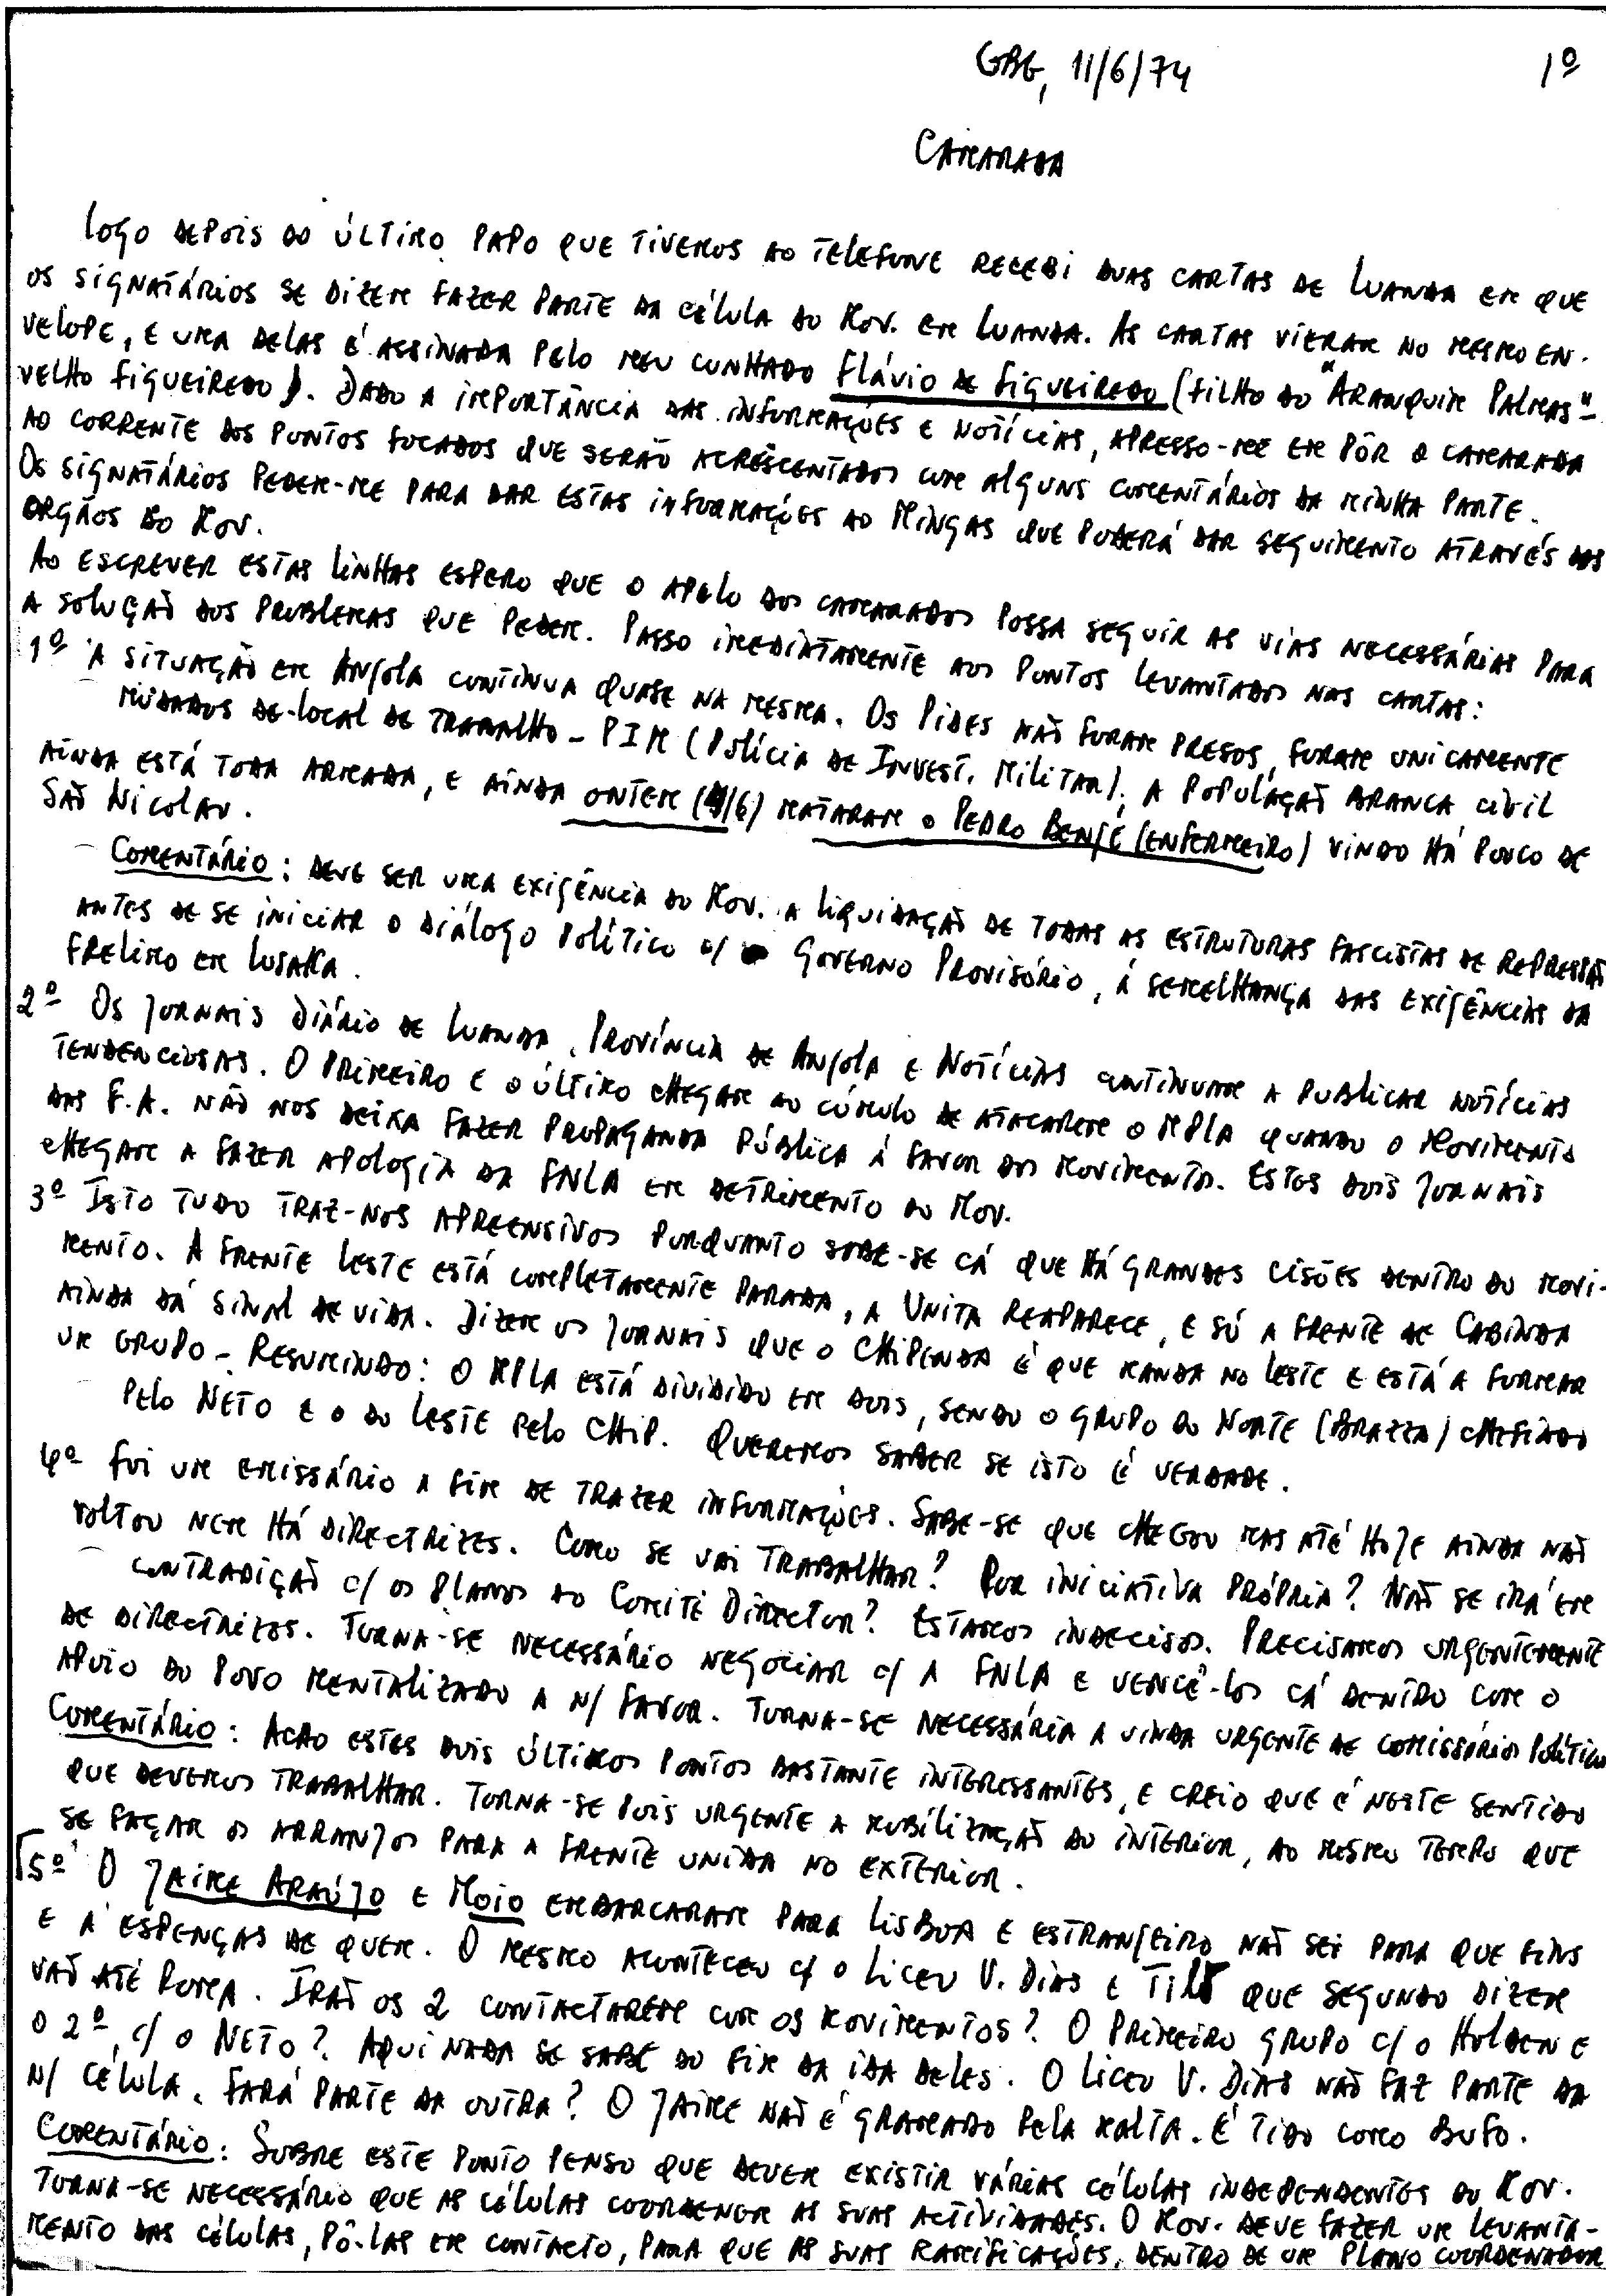 GBG, 11/6/74
1º
CAMARADA
LOGO DEPOIS DO ÚLTIMO PAPO QUE TIVEMOS AO TELEFONE RECEBI DUAS CARTAS DE LUANDA EM QUE
OS SIGNATÁRIOS SE DIZEM FAZER PARTE DA CÉLULA DO MOV. EM LUANDA. AS CARTAS VIERAM NO MESMO EN-
VELOPE, E UMA DELAS É ASSINADA PELO MEU CUNHADO FLÁVIO DE FIGUEIREDO (FILHO DO "ARANQUIM PALMAS"
VELHO FIGUEIREDO). DADO A IMPORTÂNCIA DAS INFORMAÇÕES E NOTÍCIAS, APRESSO-ME EM PÔR O CAMARADA
AO CORRENTE DOS PONTOS FOCADOS QUE SERÃO ACRESCENTADOS COM ALGUNS COMENTÁRIOS DA MINHA PARTE.
OS SIGNATÁRIOS PEDEM-ME PARA DAR ESTAS INFORMAÇÕES AO MINGAS QUE PODERÁ DAR SEGUIMENTO ATRAVÉS DOS
ORGÃOS DO MOV.
AO ESCREVER ESTAS LINHAS ESPERO QUE O APELO DOS CAMARADAS POSSA SEGUIR AS VIAS NECESSÁRIAS PARA
A SOLUÇÃO DOS PROBLEMAS QUE PEDEM. PASSO IMEDIATAMENTE AOS PONTOS LEVANTADOS NAS CARTAS:
1º A SITUAÇÃO EM ANGOLA CONTINUA QUASE NA MESMA. OS PIDES NÃO FORAM PRESOS, FORAM UNICAMENTE
MUDADOS DE LOCAL DE TRABALHO - PIM (POLÍCIA DE INVEST. MILITAR). A POPULAÇÃO BRANCA CIVIL
AINDA ESTÁ TODA ARMADA, E AINDA ONTEM (4/6) MATARAM O PEDRO BENGE (ENFERMEIRO) VINDO HÁ POUCO DE
SÃO NICOLAU.
- COMENTÁRIO: DEVE SER UMA EXIGÊNCIA DO MOV. A LIQUIDAÇÃO DE TODAS AS ESTRUTURAS FASCISTAS DE REPRESSÃO
ANTES DE SE INICIAR O DIÁLOGO POLÍTICO C/ GOVERNO PROVISÓRIO, Á SEMELHANÇA DAS EXIGÊNCIAS DA
FRELIMO EM LUSAKA.
2º OS JORNAIS DIÁRIO DE LUANDA, PROVÍNCIA DE ANGOLA E NOTÍCIAS CONTINUAM A PUBLICAR NOTÍCIAS
TENDENCIOSAS. O PRIMEIRO E O ÚLTIMO CHEGAM AO CÚMULO DE ATACAREM O MPLA QUANDO O MOVIMENTO
DAS F.A. NÃO NOS DEIXA FAZER PROPAGANDA PÚBLICA Á FAVOR DOS MOVIMENTOS. ESTES DOIS JORNAIS
CHEGAM A FAZER APOLOGIA DA FNLA EM DETRIMENTO DO MOV.
3º ISTO TUDO TRAZ-NOS APREENSIVOS PORQUANTO SABE-SE CÁ QUE HÁ GRANDES CISÕES DENTRO DO MOVI-
MENTO. A FRENTE LESTE ESTÁ COMPLETAMENTE PARADA, A UNITA REAPARECE, E SÓ A FRENTE DE CABINDA
AINDA DÁ SINAL DE VIDA. DIZEM OS JORNAIS QUE O CHIPENDA É QUE MANDA NO LESTE E ESTÁ A FORMAR
UM GRUPO - RESUMINDO: O MPLA ESTÁ DIVIDIDO EM DOIS, SENDO O GRUPO DO NORTE (BRAZZA) CHEFIADO
PELO NETO E O DO LESTE PELO CHIP. QUEREMOS SABER SE ISTO É VERDADE.
4º FOI UM EMISSÁRIO A FIM DE TRAZER INFORMAÇÕES. SABE-SE QUE CHEGOU MAS ATÉ HOJE AINDA NÃO
VOLTOU NEM HÁ DIRECTRIZES. COMO SE VAI TRABALHAR? POR INICIATIVA PRÓPRIA? NÃO SE IRÁ EM
CONTRADIÇÃO C/ OS PLANOS DO COMITÉ DIRECTOR? ESTAMOS INDECISOS. PRECISAMOS URGENTEMENTE
DE DIRECTRIZES. TORNA-SE NECESSÁRIO NEGOCIAR C/ A FNLA E VENCÊ-LOS CÁ DENTRO COM O
APOIO DO POVO MENTALIZADO A N/ FAVOR. TORNA-SE NECESSÁRIA A VINDA URGENTE DE COMISSÁRIOS POLÍTICOS
COMENTÁRIO: ACHO ESTES DOIS ÚLTIMOS PONTOS BASTANTE INTERESSANTES, E CREIO QUE É NESTE SENTIDO
QUE DEVEMOS TRABALHAR. TORNA-SE POIS URGENTE A MOBILIZAÇÃO DO INTERIOR, AO MESMO TEMPO QUE
SE FAÇAM OS ARRANJOS PARA A FRENTE UNIDA NO EXTERIOR.
5º O JAIME ARAÚJO E MOIO EMBARCARAM PARA LISBOA E ESTRANGEIRO NÃO SEI PARA QUE FINS
E Á ESPENÇAS DE QUEM. O MESMO ACONTECEU C/ O LICEU V. DIAS E TILÓ QUE SEGUNDO DIZEM
VÃO ATÉ ROMA. IRÃO OS 2 CONTACTAREM COM OS MOVIMENTOS? O PRIMEIRO GRUPO C/ O HOLDEN E
O 2º, C/ O NETO? AQUI NADA SE SABE DO FIM DA IDA DELES. O LICEU V. DIAS NÃO FAZ PARTE DA
N/ CÉLULA. FARÁ PARTE DA OUTRA? O JAIME NÃO É GRAMADO PELA MALTA. É TIDO COMO BUFO.
COMENTÁRIO: SOBRE ESTE PONTO PENSO QUE DEVEM EXISTIR VÁRIAS CÉLULAS INDEPENDENTES DO MOV.
TORNA-SE NECESSÁRIO QUE AS CÉLULAS COORDENEM AS SUAS ACTIVIDADES. O MOV. DEVE FAZER UM LEVANTA-
MENTO DAS CÉLULAS, PÔ-LAS EM CONTACTO, PARA QUE AS SUAS RAMIFICAÇÕES, DENTRO DE UM PLANO COORDENADOR